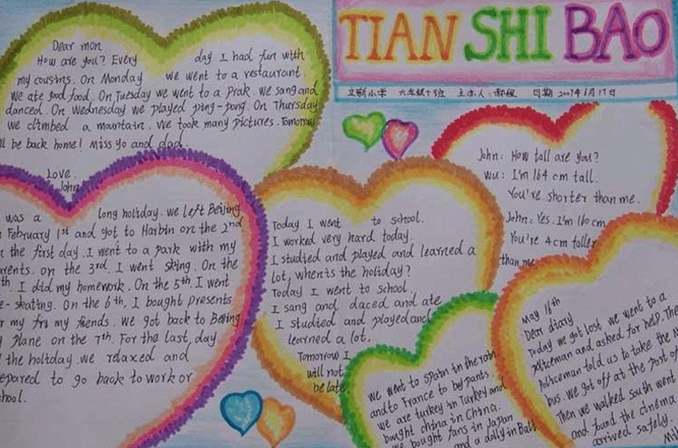 TIAN SHI BAO
Dear mon
How are you? Every day I had fun with
my cousins. On Monday we went to a restaurant.
We ate good food. On Tuesday we went to a prak. We sang and
danced. On Wednesday we played ping-pong. On Thursday
we climbed a mountain. We took many pictures. Tomorrow
ll be back home! Miss yo and dad.
Love.
John
was a long holiday. we left Beijing
February 1st and got to Harbin on the 2nd
the first day. I went to a park with my
arents. on the 3rd, I went sking. On the
th, I did my homework. On the 5th, I went
e-skating. On the 6th, I bought presents
r my friends. we got back to Beijing
plane on the 7th. For the last day
the holtday. we rdaxed and
epared to go back to work or
hool.
Today I went to school.
I worked very hard today.
I studied and played and learned a
lot, when's the holiday?
Today I went to school.
I sang and daced and ate
I studied and played and
learned a lot.
Tomorrow I
will not
be late.
John: How tall are you?
Wu: I'm 164 cm tall.
You're shorter than me.
John: Yes. I'm 160 cm
You're 4 cm taller
than me
we went to Spain in the rain
and to France to by pants
we are turkey in Turkey and
bought china in China.
we bought fans in Japan
and a dolly in Bali.
May 16th
Dear diary
Today we got lost. we went to a
policeman and asked for help. The
policeman told us to take the N
bus. we got off at the post of
Then we walked south went
and found the cinema
arrived safely.